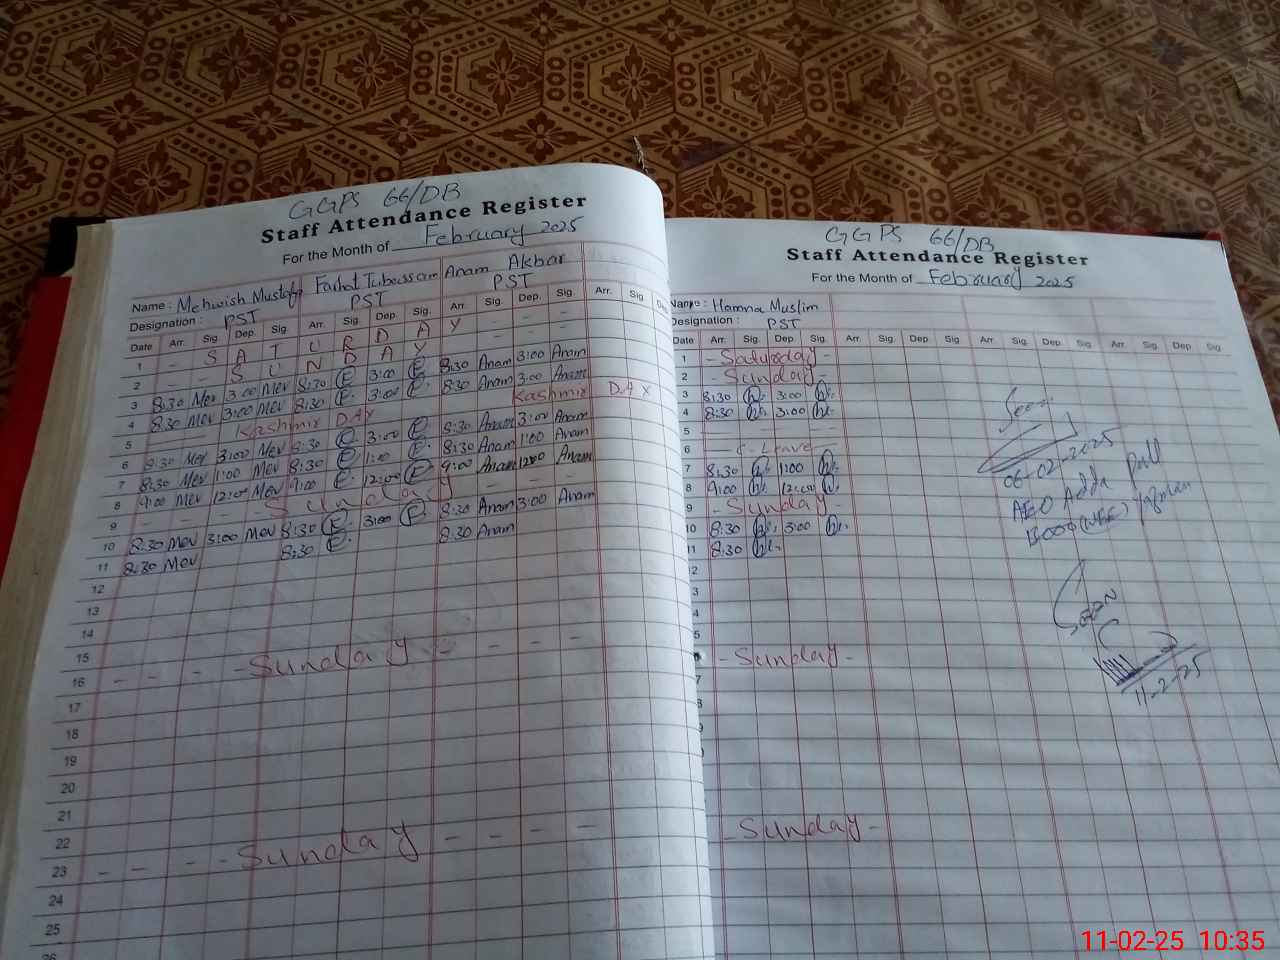 GGPS 66/DB
Staff Attendance Register
For the Month of February 2025
Name : Mehwish Mustafa Farhat Tubassam Anam Akbar
Designation : PST PST PST
Date Arr. Sig. Dep. Sig. Arr. Sig. Dep. Sig. Arr. Sig. Dep. Sig. Arr. Sig.
1 - SATURDAY - -
2 - - SUNDAY - -
3 8:30 Mev 3:00 Mev 8:30 F. 3:00 F. 8:30 Anam 3:00 Anam
4 8:30 Mev 3:00 Mev 8:30 F. 3:00 F. 8:30 Anam 3:00 Anam
5 Kashmir DAY Kashmir DAY
6 8:30 Mev 3:00 Mev 8:30 F. 3:00 F. 8:30 Anam 3:00 Anam
7 8:30 Mev 1:00 Mev 8:30 F. 1:00 F. 8:30 Anam 1:00 Anam
8 9:00 Mev 12:00 Mev 9:00 F. 12:00 F. 9:00 Anam 12:00 Anam
9 - - - - Sunday - - - -
10 8:30 Mev 3:00 Mev 8:30 F. 3:00 F. 8:30 Anam 3:00 Anam
11 8:30 Mev 8:30 F. 8:30 Anam
12
13
14
15
16 - - - - Sunday - - - -
17
18
19
20
21
22
23 - - - - Sunday - - - -
24
25
GGPS 66/DB
Staff Attendance Register
For the Month of February 2025
Name : Hamna Muslim
Designation : PST
Date Arr. Sig. Dep. Sig. Arr. Sig. Dep. Sig. Arr. Sig. Dep. Sig. Arr. Sig. Dep. Sig.
1 - Saturday -
2 - Sunday -
3 8:30 h. 3:00 h.
4 8:30 h. 3:00 h.
5
6 - C. Leave -
7 8:30 h. 1:00 h.
8 9:00 h. 12:00 h.
9 - Sunday -
10 8:30 h. 3:00 h.
11 8:30 h.
- Sunday -
- Sunday -
Seen
06-02-2025
AEO Adda
Seen
11-2-25
11-02-25 10:35